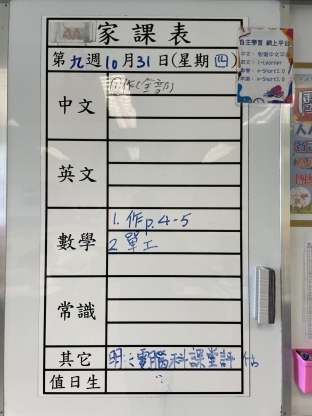 4A
家課表
第九週10月31日(星期四)
中文
作(全部)
英文
數學
1. 作p.4-5
2. 單工
常識
其它
明:電腦科課堂評估
值日生
自主學習 網上平台
i-Learner
e-Smart2.0
e-Smart2.0